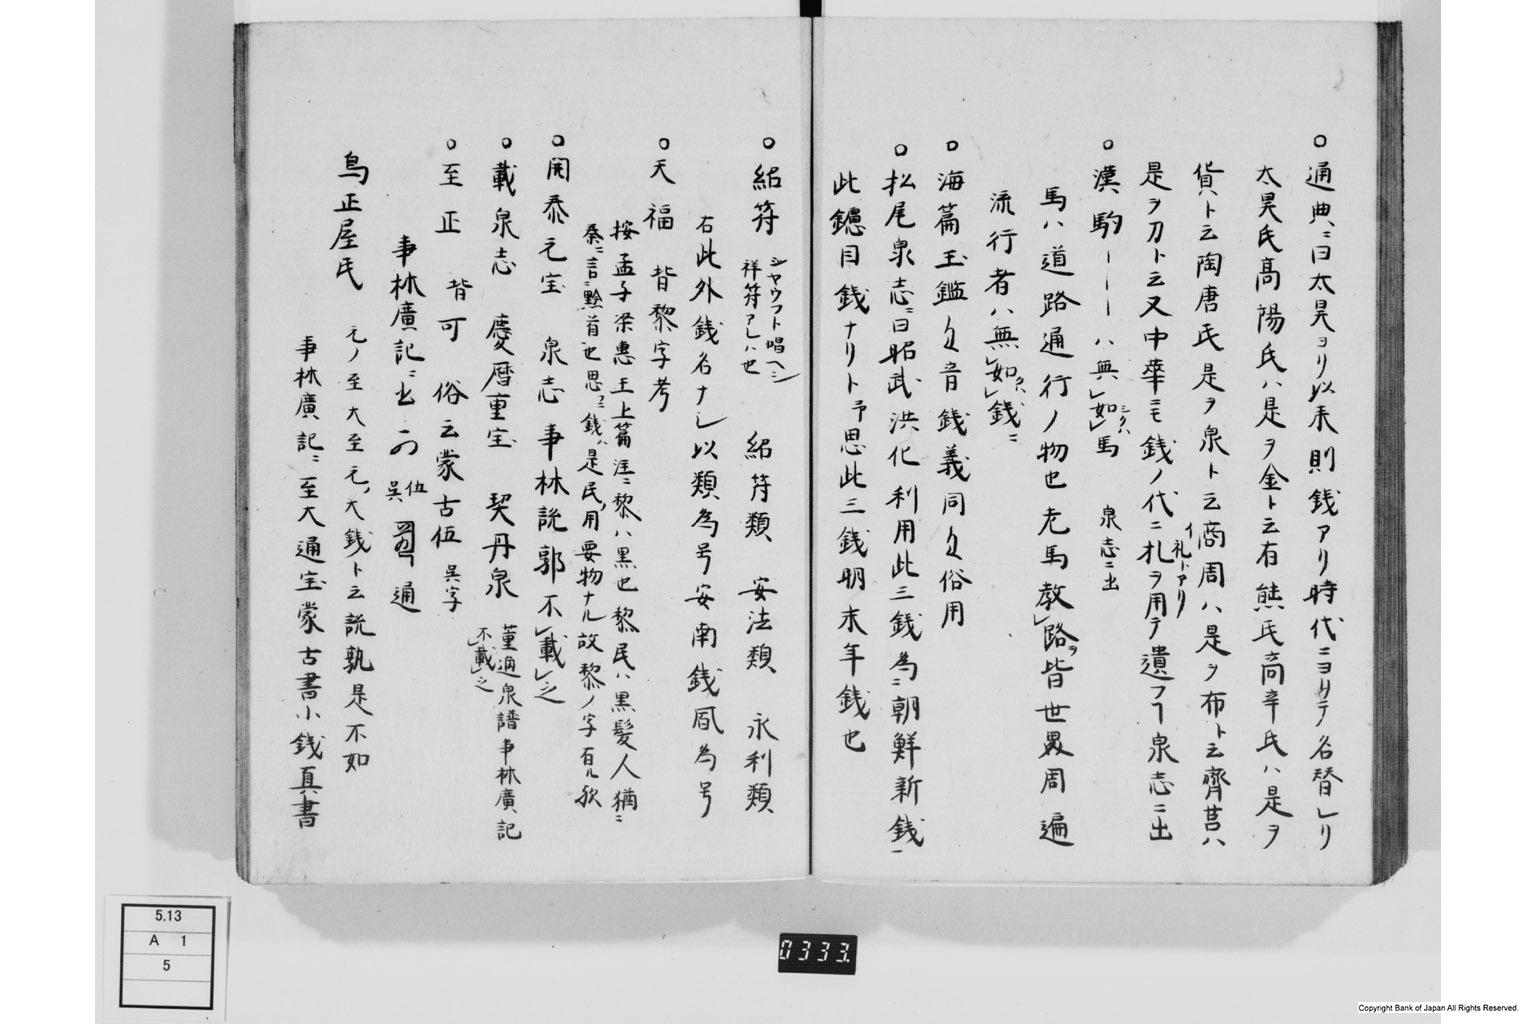 ○通典ニ曰太昊ヨリ以来則銭アリ時代ニヨリテ名替レリ
太昊氏高陽氏ハ是ヲ金ト云有熊氏高辛氏ハ是ヲ
貨ト云陶唐氏是ヲ泉ト云商周ハ是ヲ布ト云齊莒ハ
是ヲ刀ト云又中華ニモ銭ノ代ニ札ヲ用テ遺フ泉志ニ出
礼トアリ
○漢駒ーーーハ無如シクハ馬 泉志ニ出
馬ハ道路通行ノ物也老馬教路ヲ皆世界周遍
流行者ハ無如クハ銭ニ
○海篇玉鑑 音銭義同 俗用
○松尾泉志ニ曰昭武洪化利用此三銭為ニ朝鮮新銭一
此鑢目銭ナリト予思此三銭明末年銭也
○紹符 シヤウフト唱ヘシ 祥符アレハ也 紹符類 安法類 永利類
右此外銭名ナシ以類為号安南銭凬為号
○天福 背黎字考
按孟子梁惠王上篇注ニ黎ハ黒也黎民ハ黒髪人猶ニ
秦ニ言ニ黔首也思フニ銭ハ是民ノ用要物ナル故黎ノ字有ル欤
○開泰元宝 泉志事林説郛不載之
○載泉志 慶暦重宝 契丹泉 董遹泉譜事林廣記
不載之
○至正 背可 俗云蒙古伍 呉字
事林廣記ニ出 伍 呉 通
鳥正屋氏 元ノ至大至元ノ大銭ト云説孰是不如
事林廣記ニ至大通宝蒙古書小銭真書
5.13
A 1
5
0333.
Copyright Bank of Japan All Rights Reserved.